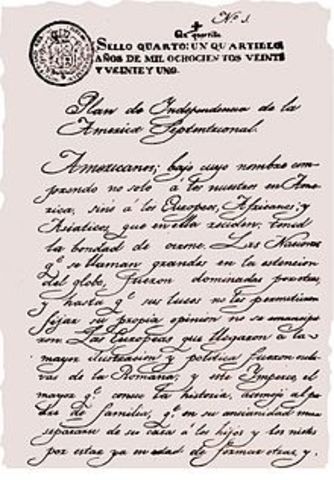 Nº 1.
Un quartillo
SELLO QUARTO: UN QUARTILLO,
AÑOS DE MIL OCHOCIENTOS VEINTE
Y VEINTE Y UNO.
Plan de Independencia de la
America Septentrional.
Americanos; bajo cuyo nombre com-
prendo no solo á los nacidos en Ame-
rica, sinó á los Europeos, Africanos, y
Asiaticos que en ella residen: tened
la bondad de oirme. Las Naciones
qº se llaman grandes en la estencion
del globo, fueron dominadas por otras,
y hasta qº sus luces no les permitieron
fijar su propia opinion no se emancipa-
ron. Las Europeas que llegaron á la
mayor ilustracion y politica fueron escla-
vas de la Romana; y este Imperio, el
mayor qº conoce la historia, asemejó al pa-
dre de familia, qº en su ancianidad mira
separarse de su casa á los hijos y los nietos
por estar ya en edad de formar otras, y